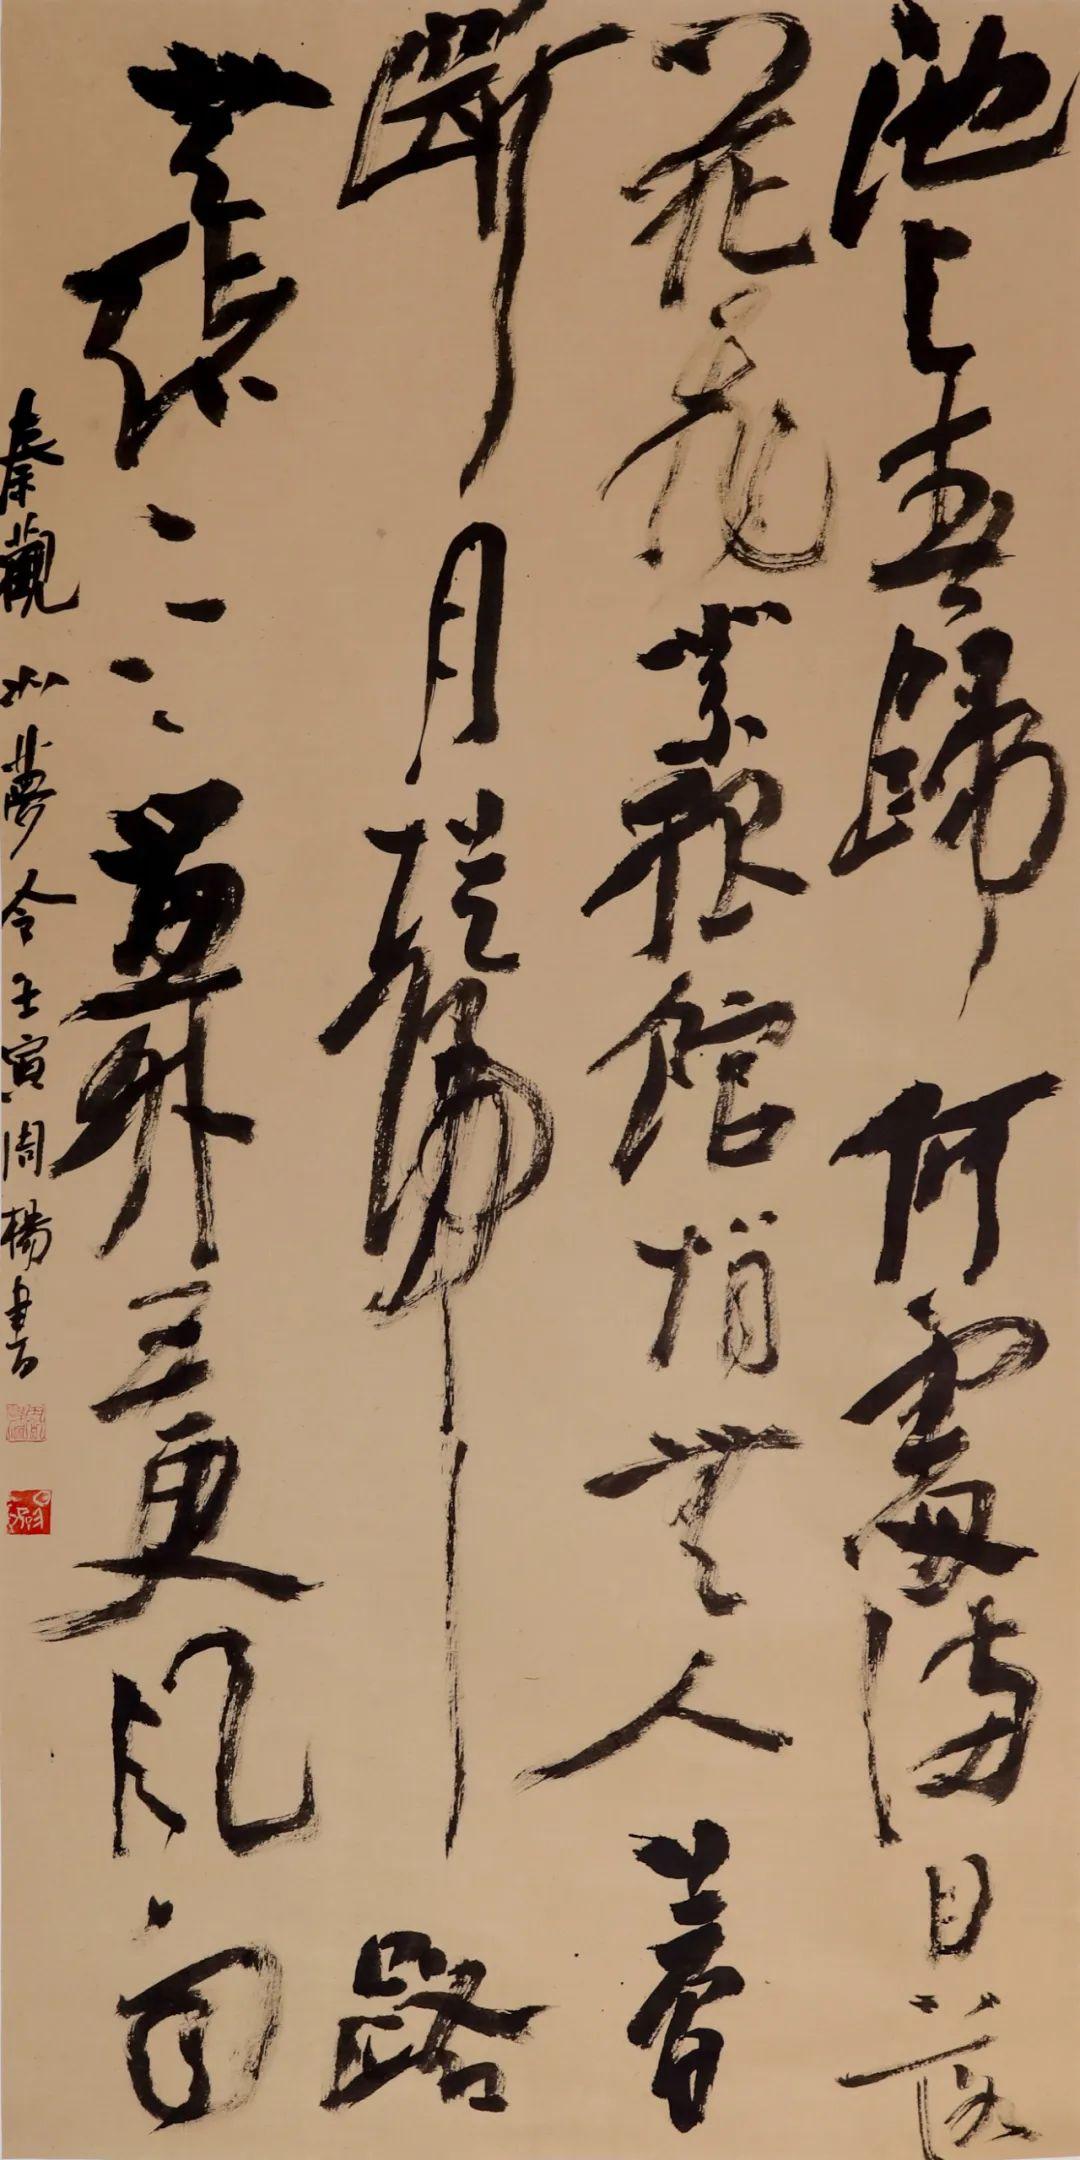 池上春歸何處滿目落
花飛絮孤館悄無人夢
斷月堤歸路
無緒〻〻簾外五更風雨
秦觀 如夢令 壬寅周楊書